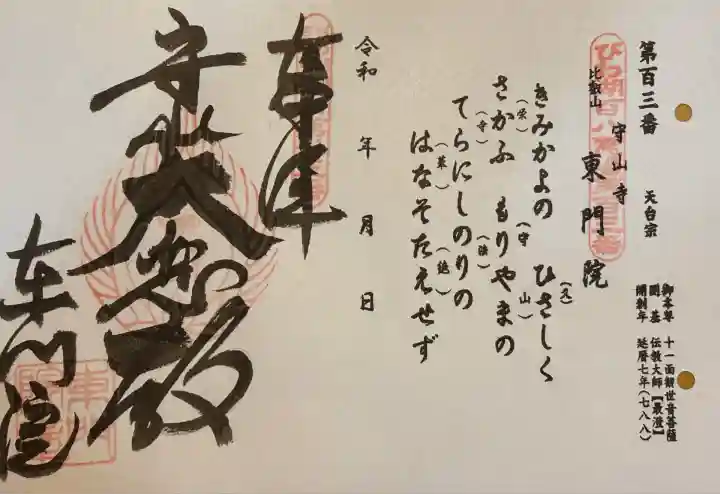 第百三番
天台宗
比叡山
守山寺
東門院
御本尊 十一面観世音菩薩
開基 伝教大師【最澄】
開創年 延暦七年(七八八)
きみかよの ひさしく(久)
さかふ(栄) もりやまの(守山)
てらにしのりの(寺)(法)
はなそたえせず(草)(絶)
令和 年 月 日
奉拝
守山
大悲殿
東門院